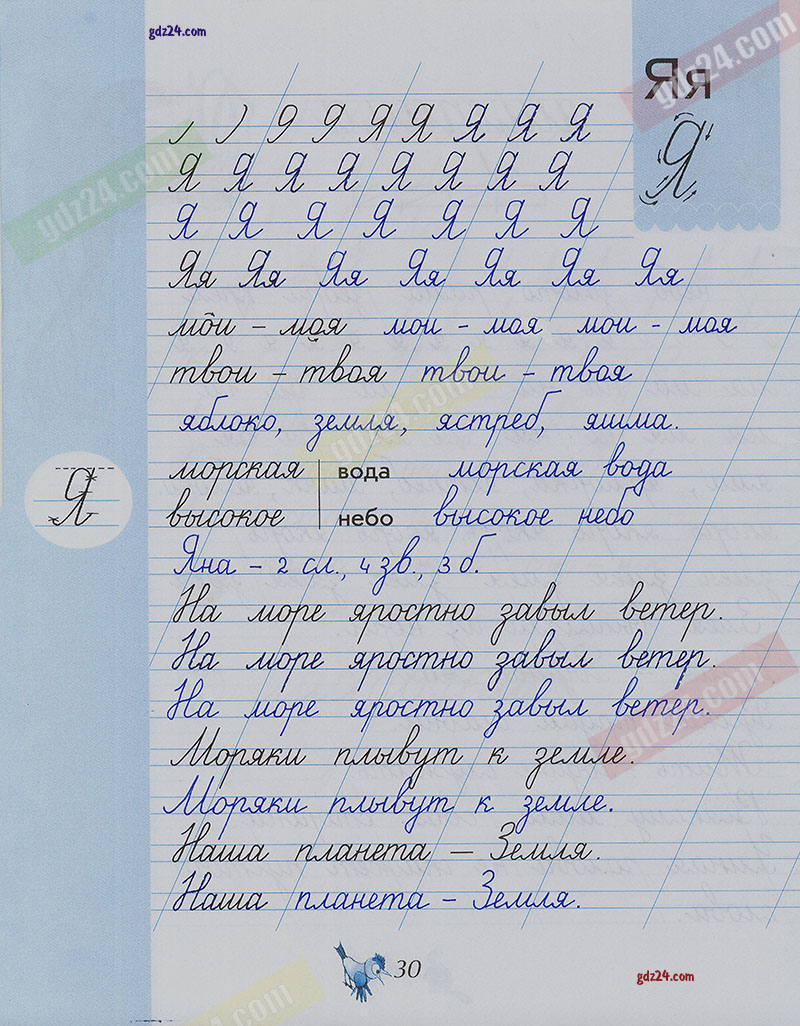 gdz24.com
Яя
Я
Я Я Я Я Я
Я Я Я Я Я Я Я Я
Я Я Я Я Я Я Я
Яя Яя Яя Яя Яя Яя Яя
мои – моя мои – моя мои – моя
твои – твоя твои – твоя
яблоко, земля, ястреб, яшма.
морская вода морская вода
Я
высокое небо высокое небо
Яна – 2 сл., 4 зв., 3 б.
На море яростно завыл ветер.
На море яростно завыл ветер.
На море яростно завыл ветер.
Моряки плывут к земле.
Моряки плывут к земле.
Наша планета – Земля.
Наша планета – Земля.
30
gdz24.com